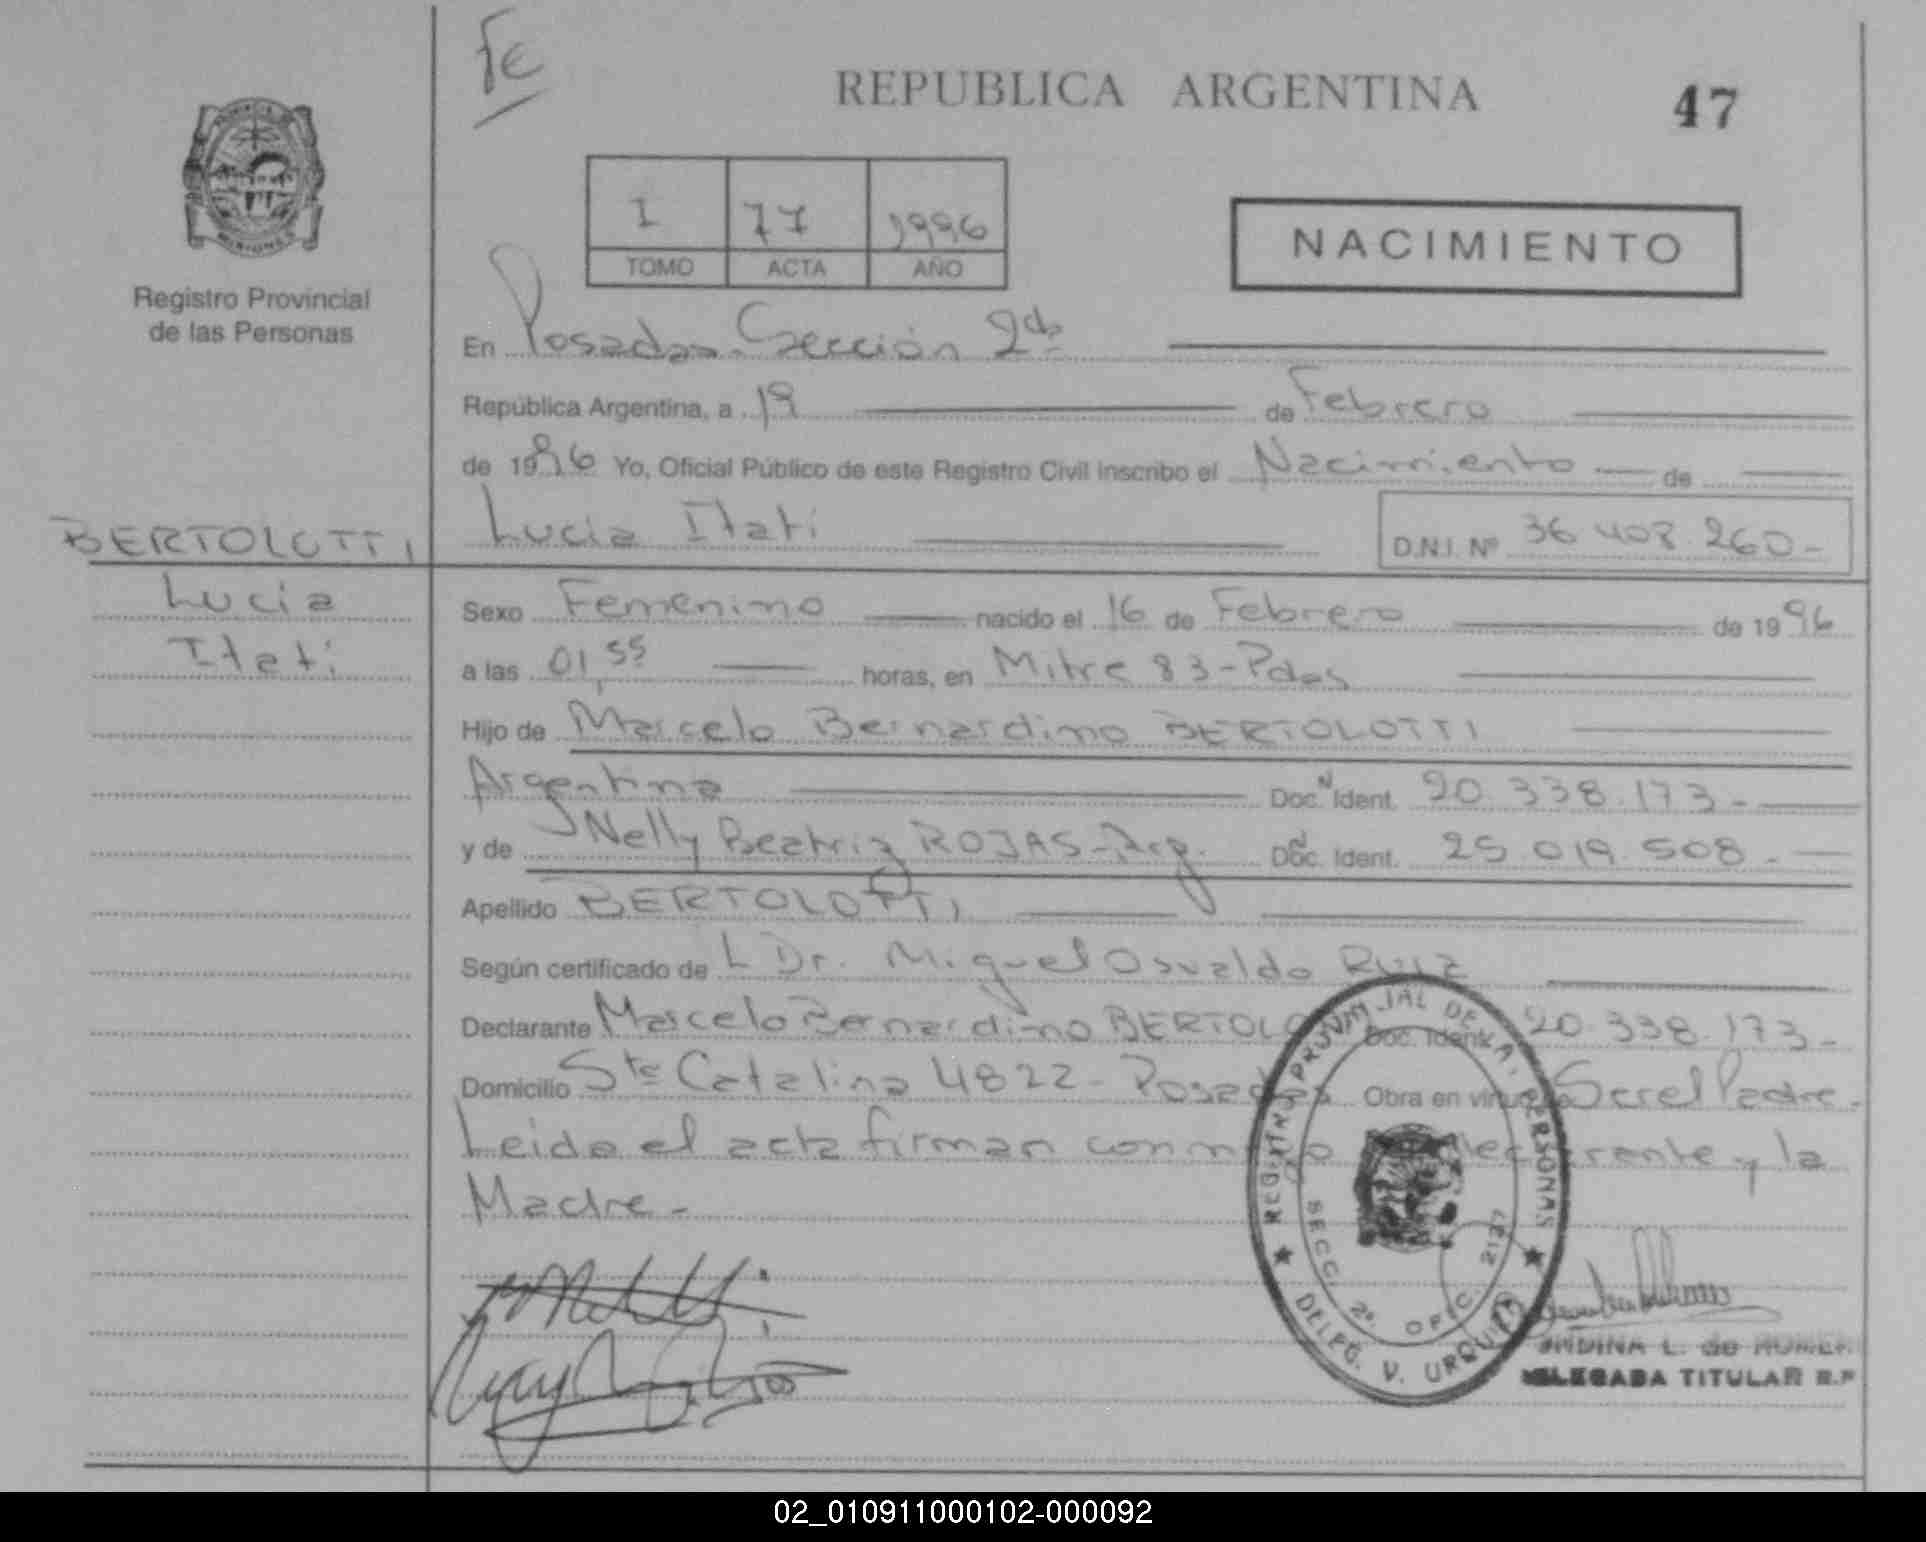 Fe
REPUBLICA ARGENTINA
47
MISIONES
Registro Provincial
de las Personas
I 77 1996
TOMO ACTA AÑO
NACIMIENTO
En Posadas-Sección 2da
República Argentina, a 19 de Febrero
de 1996 Yo, Oficial Público de este Registro Civil inscribo el Nacimiento de
BERTOLOTTI
Lucia Itatí
D.N.I. Nº 36.408.260-
Lucia
Itatí
Sexo Femenino nacido el 16 de Febrero de 1996
a las 01,55 horas, en Mitre 83-Pdas
Hijo de Marcelo Bernardino BERTOLOTTI
Argentina Doc. Ident. 20.338.173-
y de Nelly Beatriz ROJAS-Arg. Doc. Ident. 25.019.508.-
Apellido BERTOLOTTI
Según certificado de L Dr. Miguel Osvaldo RUIZ
Declarante Marcelo Bernardino BERTOLO Doc. Ident. 20.338.173-
Domicilio Sta Catalina 4822- Posadas Obra en virtud Ser el Padre-
Leida el acta firman conmigo declarante y la
Madre-
REGISTRO PROVINCIAL DE LA. PERSONAS
SECC. 2º. OFIC. 2137
DELEG. V. URQUIZA
L. de
DELEGADA TITULAR R.P
02_010911000102-000092